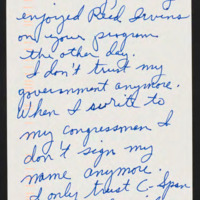 enjoyed Reed Irvins
on your program
the other day.
I don't trust my
government anymore.
When I write to
my congressmen I
don't sign my
name anymore.
I only trust C-Span